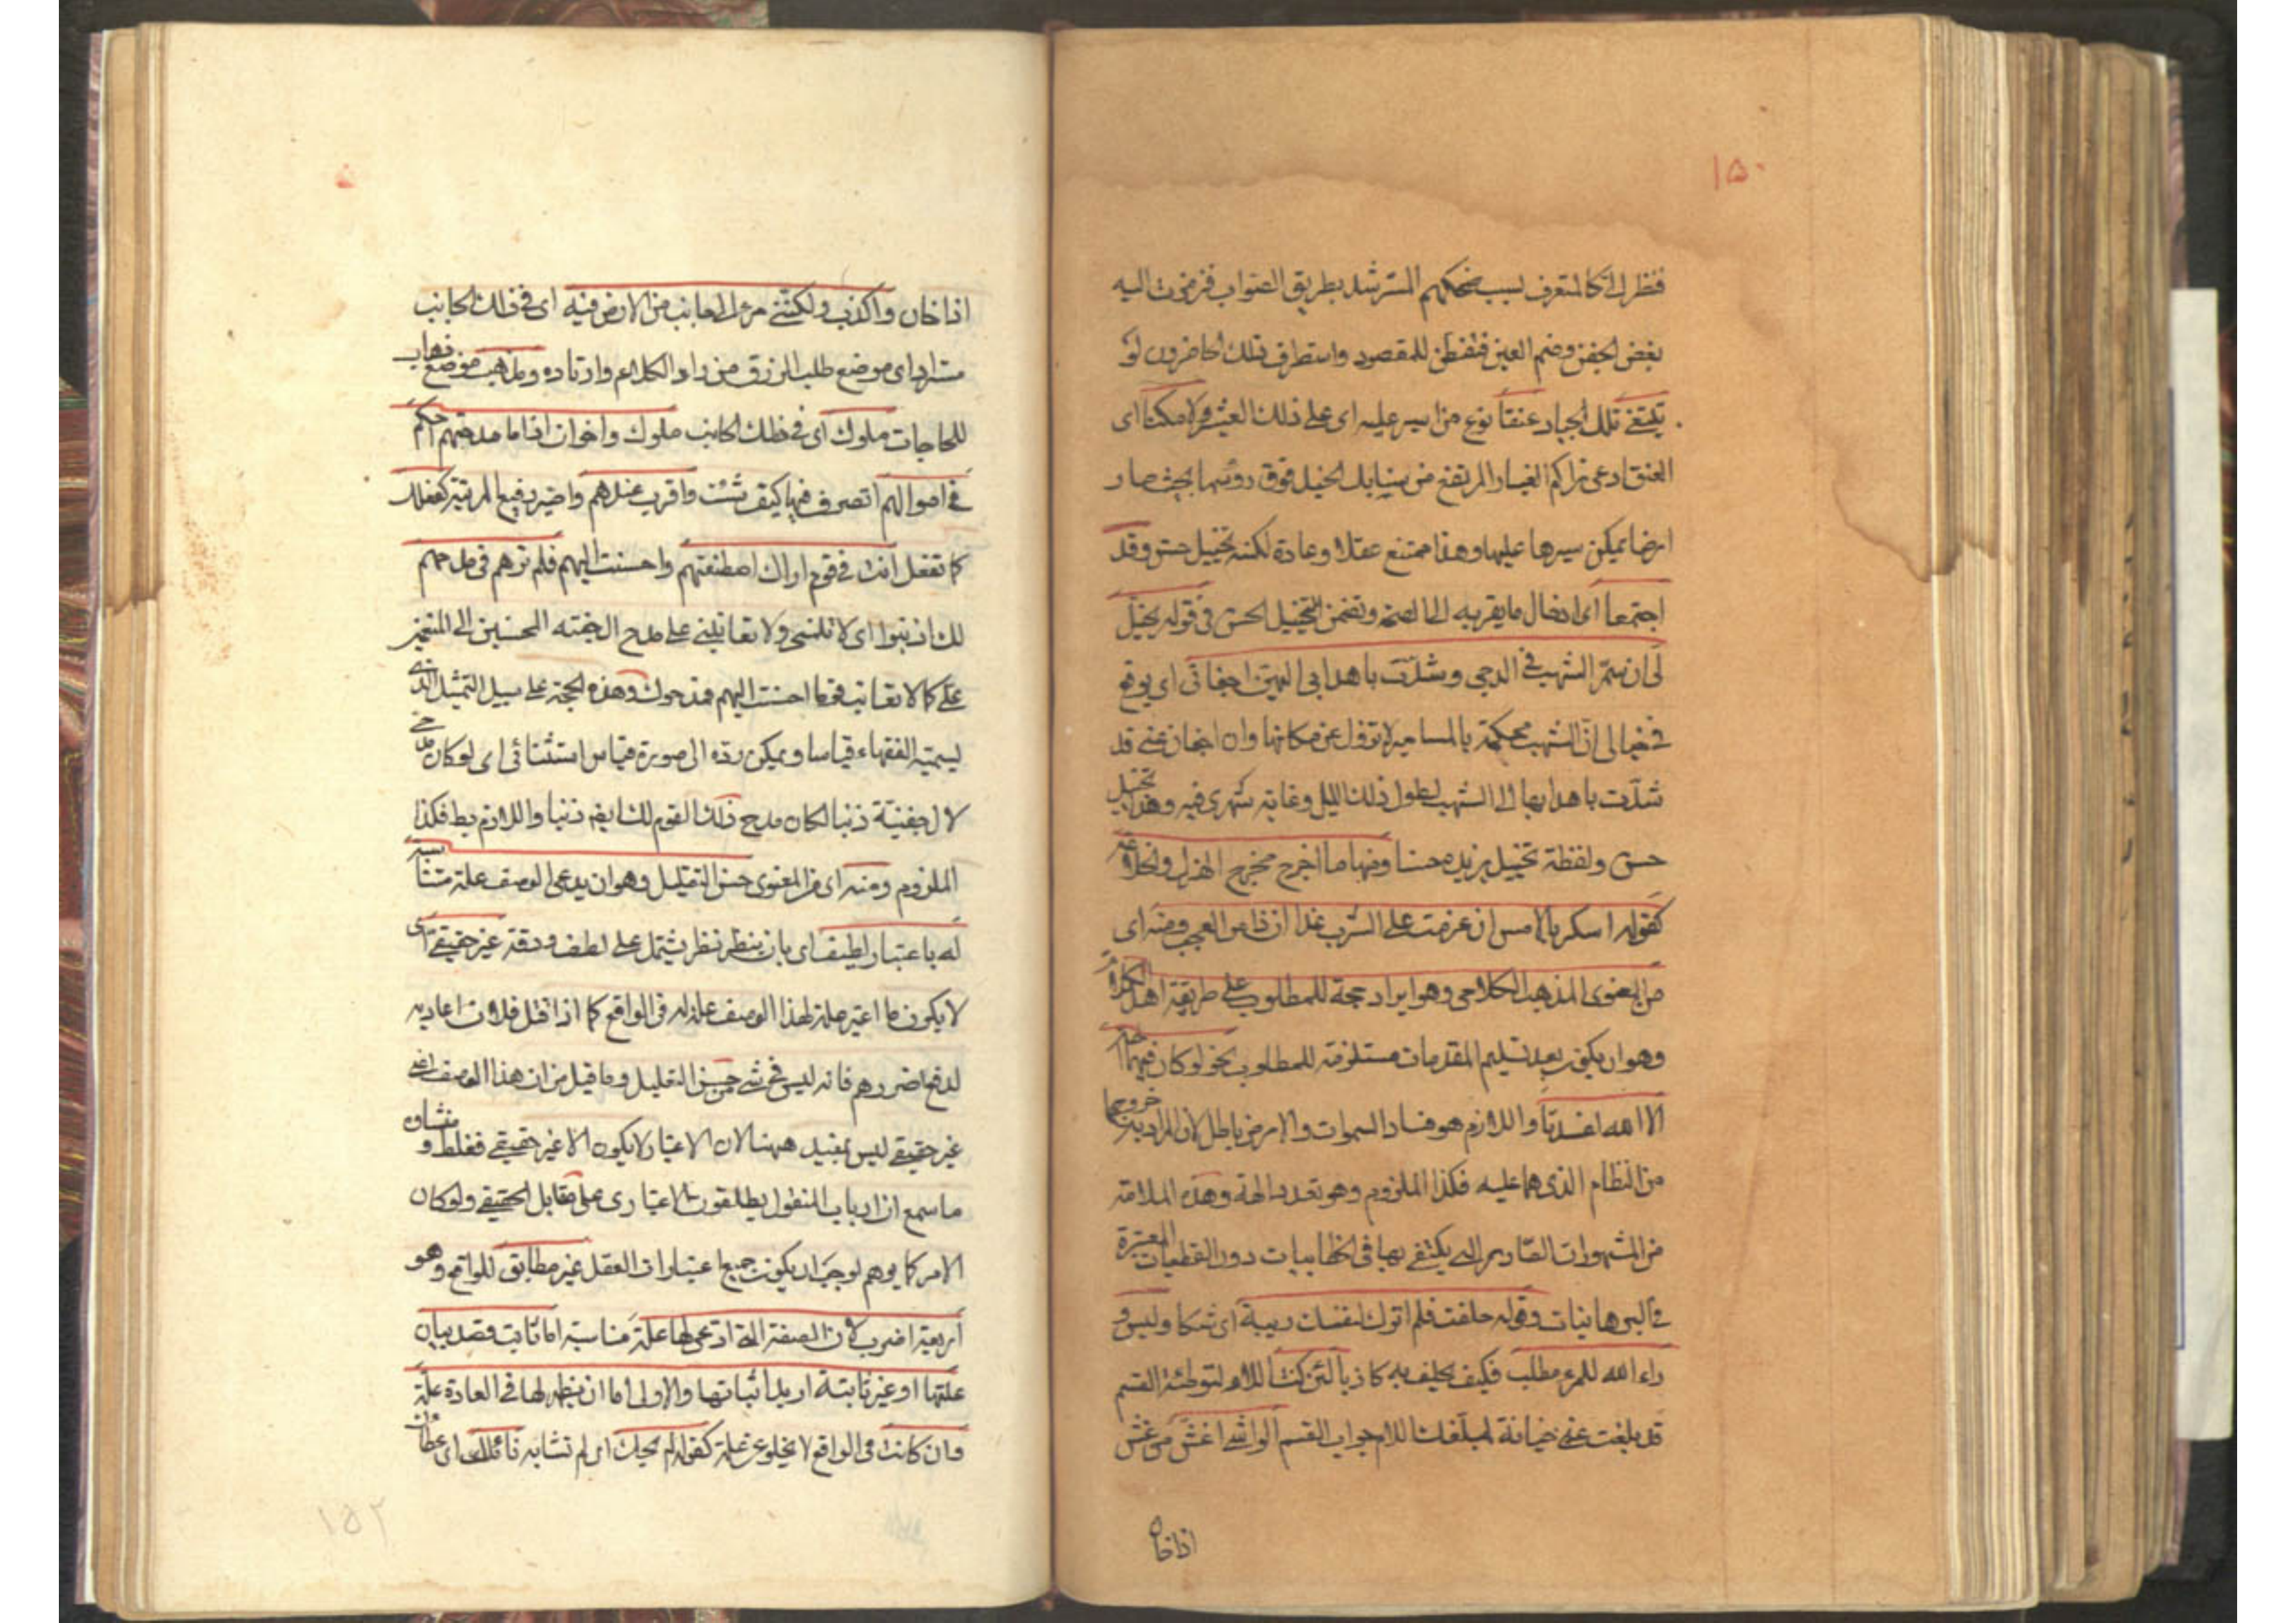 ١٥٠
فنظر الیّ کالمتعرف لسبب ضحکهم المسترشد بطریق الصواب فرمزت الیه
بغض الجفن وضم العین فتفطن للمقصود واستطرف ذلک الحاضرون لو
تبتغی تلک الجیاد عنقا نوع من السیر علیه ای علی ذلک العثیر لامکنا ای
العنق ادعی تراکم الغبار المرتفع من سنابک الخیل فوق رؤسها بحیث صار
ارضا یمکن سیرها علیها وهذا ممتنع عقلا وعادة لکنه تخییل حسن وقد
اجتمعا ای ادخال ما یقربه الی الصحة وتضمن التخییل الحسن فی قوله یخیّل
لی ان سمّر الشهب فی الدجی وشدّت باهدابی الیهن اجفانی ای یوقع
فی خیالی انّ الشهب محکمة بالمسامیر لا تزول عن مکانها وان اجفان عینی قد
شدّت باهدابها الی الشهب لطول ذلک اللیل وغایة سهری فیه وهذا تخییل
حسن ولفظة تخییل یزیده حسنا ومنها ما اخرج مخرج الهزل والخلاعة
کقوله اسکر بالامس ان عزمت علی الشرب غدا ان ذا من العجب ومنه ای
من المعنوی المذهب الکلامی وهو ایراد حجة للمطلوب علی طریقة اهل الکلام
وهو ان یکون بعد تسلیم المقدمات مستلزمة للمطلوب نحو لو کان فیهما آلهة
الا الله لفسدتا واللازم هو فساد السموات والارض باطل لان المراد به خروجها
من النظام الذی هما علیه فکذا الملزوم وهو تعدد الهة وهذه الملازمة
من المشهورات الصادقة التی یکتفی بها فی الخطابیات دون القطعیات المعتبرة
فی البرهانیات وقوله حلفت فلم اترک لنفسک ریبة ای شکا ولیس و
راء الله للمرء مطلب فکیف یحلف به کاذبا لئن کنت اللام لتوطئة القسم
قد بلغت عنی خیانة لمبلغک اللام جواب القسم الواشی اغش من غش
اذا خان
اذا خان واکذب ولکننی مرء لی جانب من الارض فیه ای فی ذلک الجانب
مستراد ای موضع طلب الرزق من راد الکلاء وارتاده ومذهب موضع ذهاب
للحاجات ملوک ای فی ذلک الجانب ملوک واخوان اذا ما مدحتهم احکم
فی اموالهم اتصرف فیها کیف شئت واقرب عندهم واصیر رفیع المرتبة کفعلک
کما تفعل انت فی قوم اراک اصطنعتهم واحسنت الیهم فلم ترهم فی مدحهم
لک اذنبوا ای لا تلمنی ولا تعاتبنی علی مدح ال جفنة المحسنین الی المنعمین
علی کما لا تعاتب قوما احسنت الیهم فمدحوک وهذه الحجة علی سبیل التمثیل الذی
یسمیه الفقهاء قیاسا ویمکن ردّه الی صورة قیاس استثنائی ای لو کان مدحی
لال جفنة ذنبا لکان مدح ذلک القوم لک ایضا ذنبا واللازم بط فکذا
الملزوم ومنه ای من المعنوی حسن التعلیل وهو ان یدعی لوصف علة مناسبة
له باعتبار لطیف ای بان ینظر نظر یشتمل علی لطف ودقة غیر حقیقی ای
لا یکون ما اعتبر علة لهذا الوصف علة له فی الواقع کما اذا قتل فلان اعادیه
لدفع ضررهم فانه لیس فی شیء من حسن التعلیل وما قیل من ان هذا الوصف اعنی
غیر حقیقی لیس بمفید ههنا لان الاعتبار لا یکون الا غیر حقیقی فغلط ومنشاؤه
ما سمع ان ارباب المنقول یطلقون الاعتباری علی مقابل الحقیقی ولو کان
الامر کما یوهم لوجب ان یکون جمیع اعتبارات العقل غیر مطابق للواقع وهو
اربعة اضرب لان الصفة التی ادعی لها علة مناسبة اما ثابت قصد بیان
علتها او غیر ثابتة ارید اثباتها والاولی اما ان یظهر لها فی العادة علة
وان کانت فی الواقع لا یخلو عن علة کقوله لم یحک ای لم تشابه نائلک ای عطاؤک
١٥٢